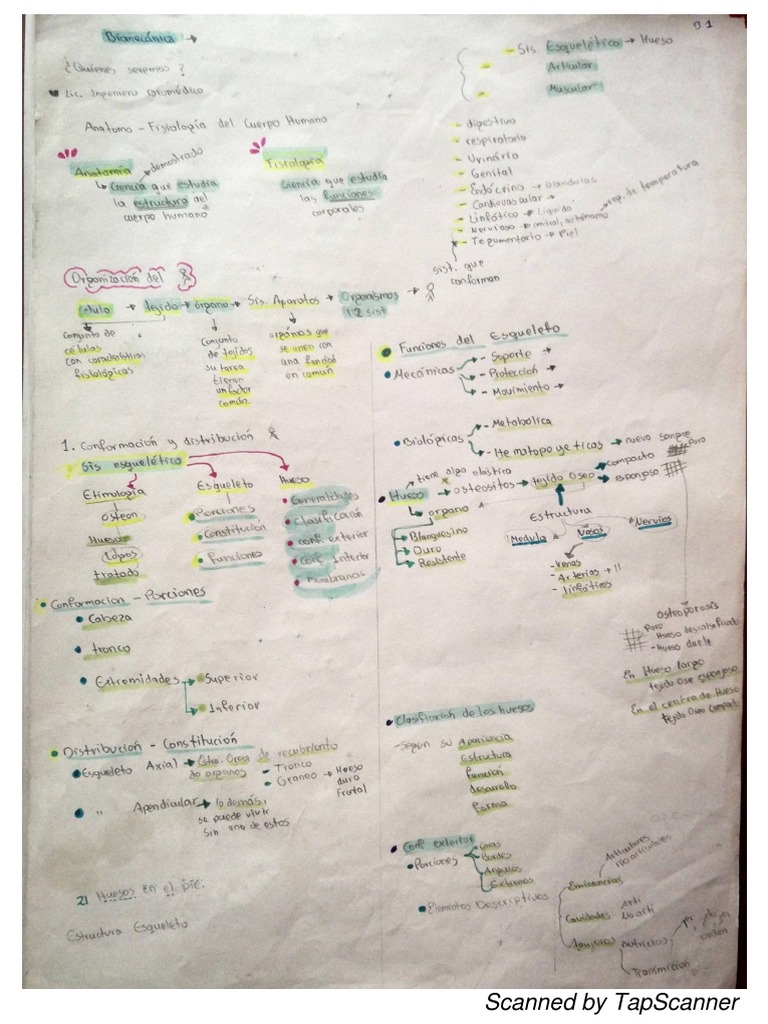 B1
Biomecánica →
¿Quienes seremos?
Lic. Ingeniero
Anatomo - Fisiología del Cuerpo Humano
Anatomía → demostrado
Ciencia que estudia
la estructura del
cuerpo humano
Fisiología
Ciencia que estudia
las funciones
corporales
- Sis. Esquelético → Hueso
Articular
Muscular
- digestivo
- respiratorio
- Urinário
- Genital
- Endócrino → glandulas
- Cardiovascular →
- Linfático → Liquido
- Nervioso → central, autónomo → rep. de temperatura
- Tegumentario → Piel
sist. que
conforman
Organización del
Célula → tejido → órgano → Sis. Aparatos → Organismos
12 sist
conjunto de
células
con características
fisiológicas
conjunto
de tejidos
su tarea
tienen
un factor
común.
orgános que
se unen con
una función
en común
1. Conformación y distribución
Sis esquelético
Etimología
osteon
Hueso
logos
tratado
Esqueleto
Porciones
Constitución
Funciones
Hueso
Generalidades
Clasificación
conf. exterior
conf. Interior
membranas
Conformacion - Porciones
Cabeza
tronco
Extremidades → Superior
Inferior
Distribución - Constitución
Esqueleto Axial → de recubriento
do organos
- Tronco
- Craneo → Hueso
duro
frontal
" Apendicular → lo demás,
se puede vivir
sin uno de estos
21 Huesos en el pie.
Estructura Esqueleto
Funciones del Esqueleto
Mecánicas → - Soporte →
- Protección →
- Movimiento →
Biológicas → - Metabolica
- Hematopoyeticas → nuevo sangre
tiene algo elástico
Hueso → osteositos → tejido Oseo → compacto
esponjoso
Poro
organo
Blanquesino
Duro
Resistente
Estructura
Medula
Vasos
Nervios
- Venas
- Arterias → 11
- linfáticos
osteoporosis
Poro
Hueso descalsificado
- Hueso duele
En Hueso largo
tejido Ose esponjoso
En el centro de Hueso
tejido Oseo compact
Clasificación de los huesos
- Segun su Apariencia
Estructura
función
desarrollo
forma
Conf exterior
Porciones
Caras
Bordes
Angulos
Extremos
Elementos Descriptivos
Eminencias
Articulares
no articulares
Cavidades
Arti
No arti
Agujeros
nutricios
Transmicion
Scanned by TapScanner